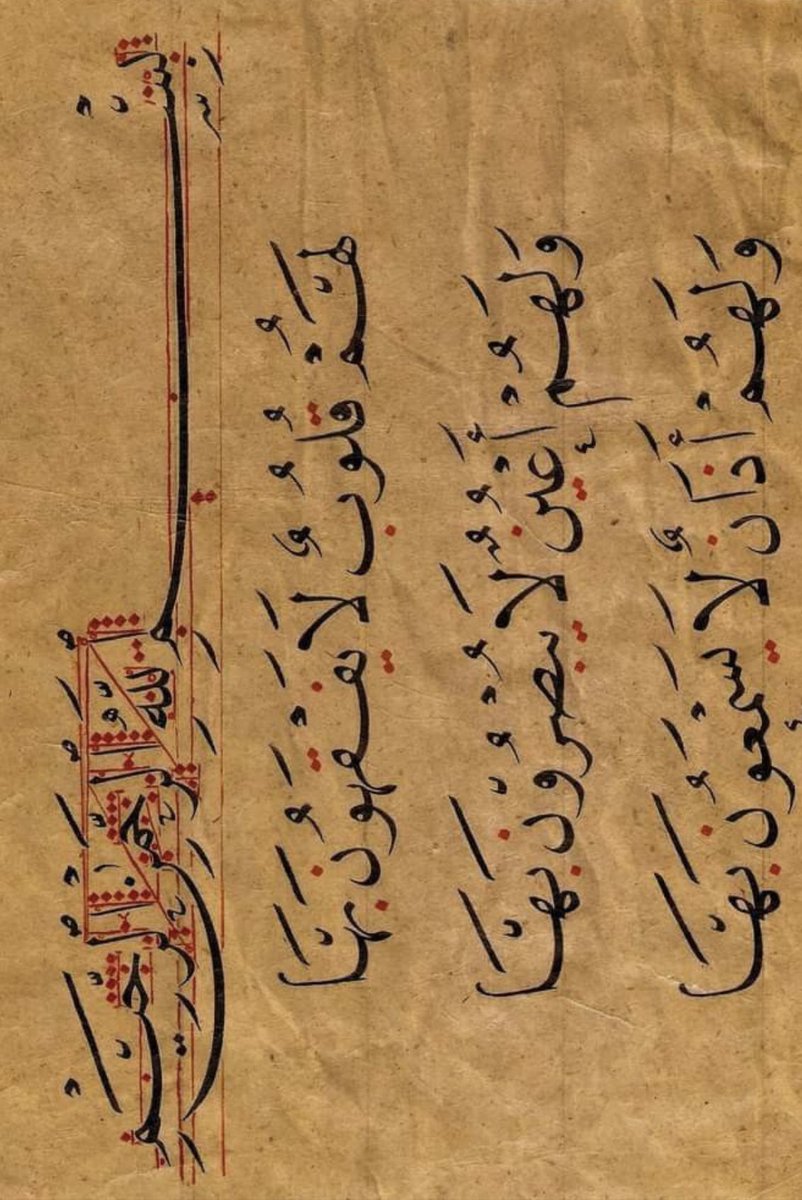 بِسْمِ اللّٰهِ الرَّحْمٰنِ الرَّحِيمِ
لَهُمْ قُلُوبٌ لَا يَفْقَهُونَ بِهَا
وَلَهُمْ أَعْيُنٌ لَا يُبْصِرُونَ بِهَا
وَلَهُمْ أٰذَانٌ لَا يَسْمَعُونَ بِهَا